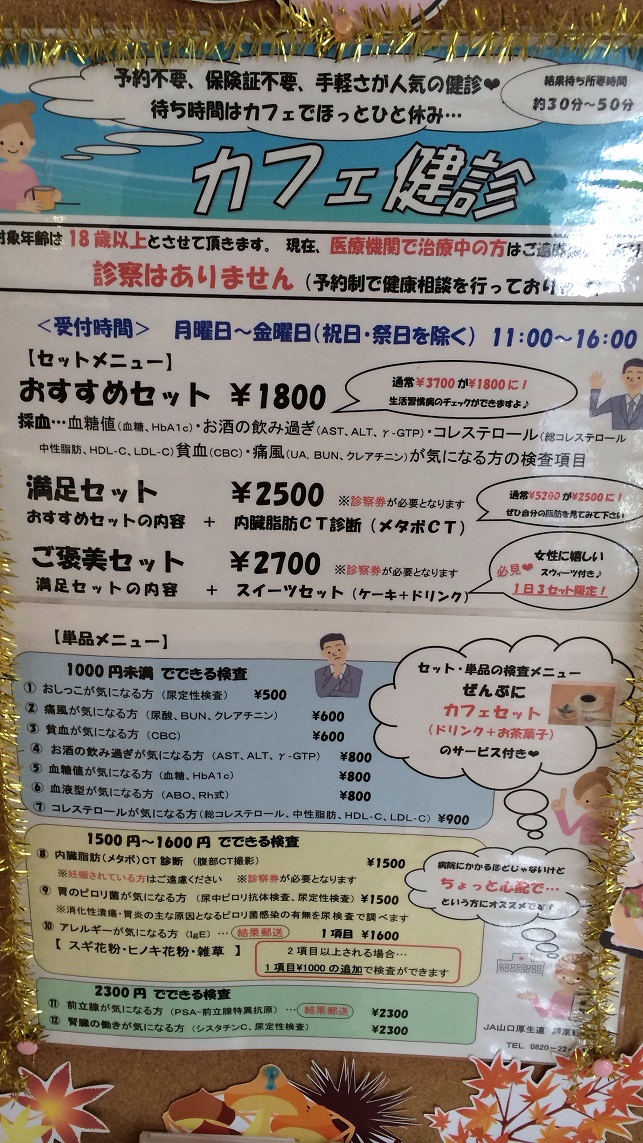 予約不要、保険証不要、手軽さが人気の健診❤
待ち時間はカフェでほっとひと休み…
結果待ち所要時間
約30分～50分
カフェ健診
対象年齢は18歳以上とさせて頂きます。 現在、医療機関で治療中の方はご遠慮
診察はありません（予約制で健康相談を行っており
＜受付時間＞ 月曜日～金曜日（祝日・祭日を除く） 11:00～16:00
【セットメニュー】
おすすめセット ￥1800
通常￥3700が￥1800に！
生活習慣病のチェックができますよ♪
採血…血糖値（血糖、HbA1c）・お酒の飲み過ぎ（AST、ALT、γ-GTP）・コレステロール（総コレステロール
中性脂肪、HDL-C、LDL-C）貧血（CBC）・痛風（UA、BUN、クレアチニン）が気になる方の検査項目
満足セット ￥2500 ※診察券が必要となります
おすすめセットの内容 ＋ 内臓脂肪CT診断（メタボCT）
通常￥5200が￥2500に！
ぜひ自分の脂肪を見てみて下さい
ご褒美セット ￥2700 ※診察券が必要となります
満足セットの内容 ＋ スイーツセット（ケーキ＋ドリンク）
女性に嬉しい
必見❤ スウィーツ付き♪
1日3セット限定！
【単品メニュー】
1000円未満 でできる検査
① おしっこが気になる方（尿定性検査） ￥500
② 痛風が気になる方（尿酸、BUN、クレアチニン） ￥600
③ 貧血が気になる方（CBC） ￥600
④ お酒の飲み過ぎが気になる方（AST、ALT、γ-GTP） ￥800
⑤ 血糖値が気になる方（血糖、HbA1c） ￥800
⑥ 血液型が気になる方（ABO、Rh式） ￥800
⑦ コレステロールが気になる方（総コレステロール、中性脂肪、HDL-C、LDL-C） ￥900
セット・単品の検査メニュー
ぜんぶに
カフェセット
（ドリンク＋お茶菓子）
のサービス付き❤
1500円～1600円 でできる検査
⑧ 内臓脂肪（メタボ）CT診断（腹部CT撮影） ￥1500
※妊娠されている方はご遠慮ください ※診察券が必要となります
⑨ 胃のピロリ菌が気になる方（尿中ピロリ抗体検査、尿定性検査） ￥1500
※消化性潰瘍・胃炎の主な原因となるピロリ菌感染の有無を尿検査で調べます
⑩ アレルギーが気になる方（IgE）…結果郵送 1項目 ￥1600
【 スギ花粉・ヒノキ花粉・雑草 】
2項目以上される場合…
1項目￥1000の追加で検査ができます
病院にかかるほどじゃないけど
ちょっと心配で…
という方にオススメです！
2300円 でできる検査
⑪ 前立腺が気になる方（PSA-前立腺特異抗原）…結果郵送 ￥2300
⑫ 腎臓の働きが気になる方（シスタチンC、尿定性検査） ￥2300
JA山口厚生連
TEL 0820-22-